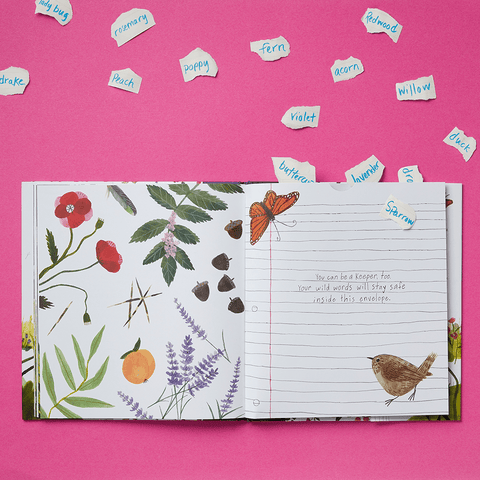 ladybug
rosemary
Redwood
fern
poppy
acorn
drake
Peach
willow
violet
duck
buttercu
lavender
dra
Sparrow
You can be a keeper, too.
Your wild words will stay safe
inside this envelope.